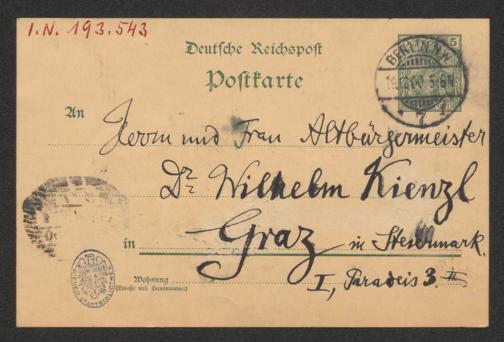 I.N. 193.543
Deutsche Reichspost
Postkarte
5
BERLIN.N.W.
7
An
Herrn und Frau Altbürgermeister
Dr. Wilhelm Kienzl
in Graz in Steiermark
Wohnung
(Straße und Hausnummer)
I, Paradeis 3. II